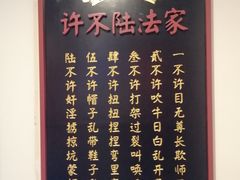 家法陆不许
一不许目无尊长欺师
贰不许吹牛日白乱开
叁不许打架过孽叫唤
肆不许扭扭捏捏弯里
伍不许帽子乱带鞋子
陆不许奸淫掳掠坑蒙